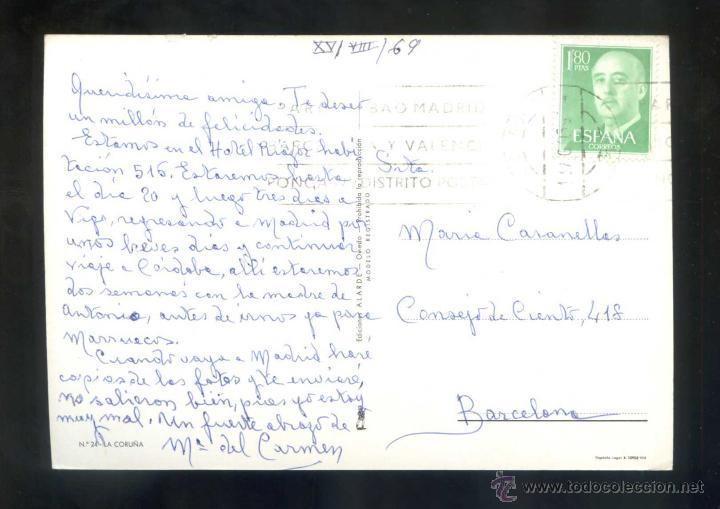 XV/VIII/69
Queridísima amiga: Te deseo
un millón de felicidades.
Estamos en el Hotel Riazor habi
tación 515. Estaremos hasta
el día 20 y luego tres días a
Vigo, regresando a Madrid por
unos breves días y continuar
viaje a Córdoba, allí estaremos
dos semanas con la madre de
Antonio, antes de irnos ya para
Marruecos.
Cuando vaya a Madrid haré
copias de las fotos y te enviaré,
no salieron bien, pues yo estoy
muy mal. Un fuerte abrazo de
Mª del Carmen
N.º 24 - LA CORUÑA
Ediciones ALARDE - Oviedo Prohibida la reproducción
MODELO REGISTRADO
BAO MADRID
A Y VALENCI
PONGA DISTRITO POSTA
1'80
PTAS
ESPAÑA
CORREOS
Srta.
Maria Caranellas
Consejo de Ciento, 418
Barcelona
www.todocoleccion.net